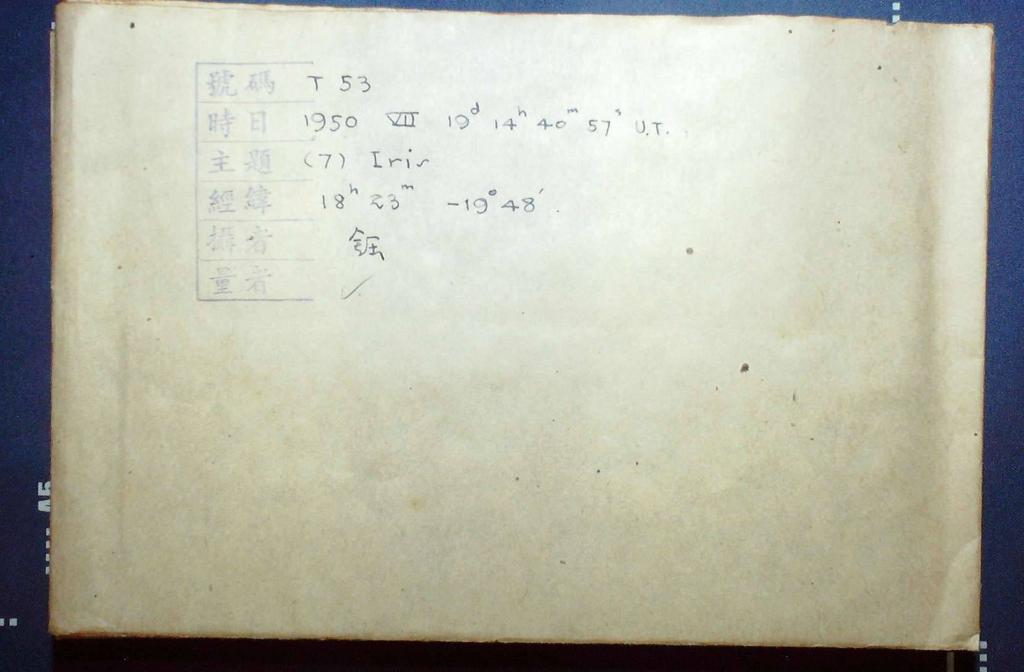 號碼 T 53
時日 1950 VII 19ᵈ 14ʰ 40ᵐ 57ˢ U.T.
主題 (7) Iris
經緯 18ʰ 23ᵐ -19° 48′
攝者
量者 ✓